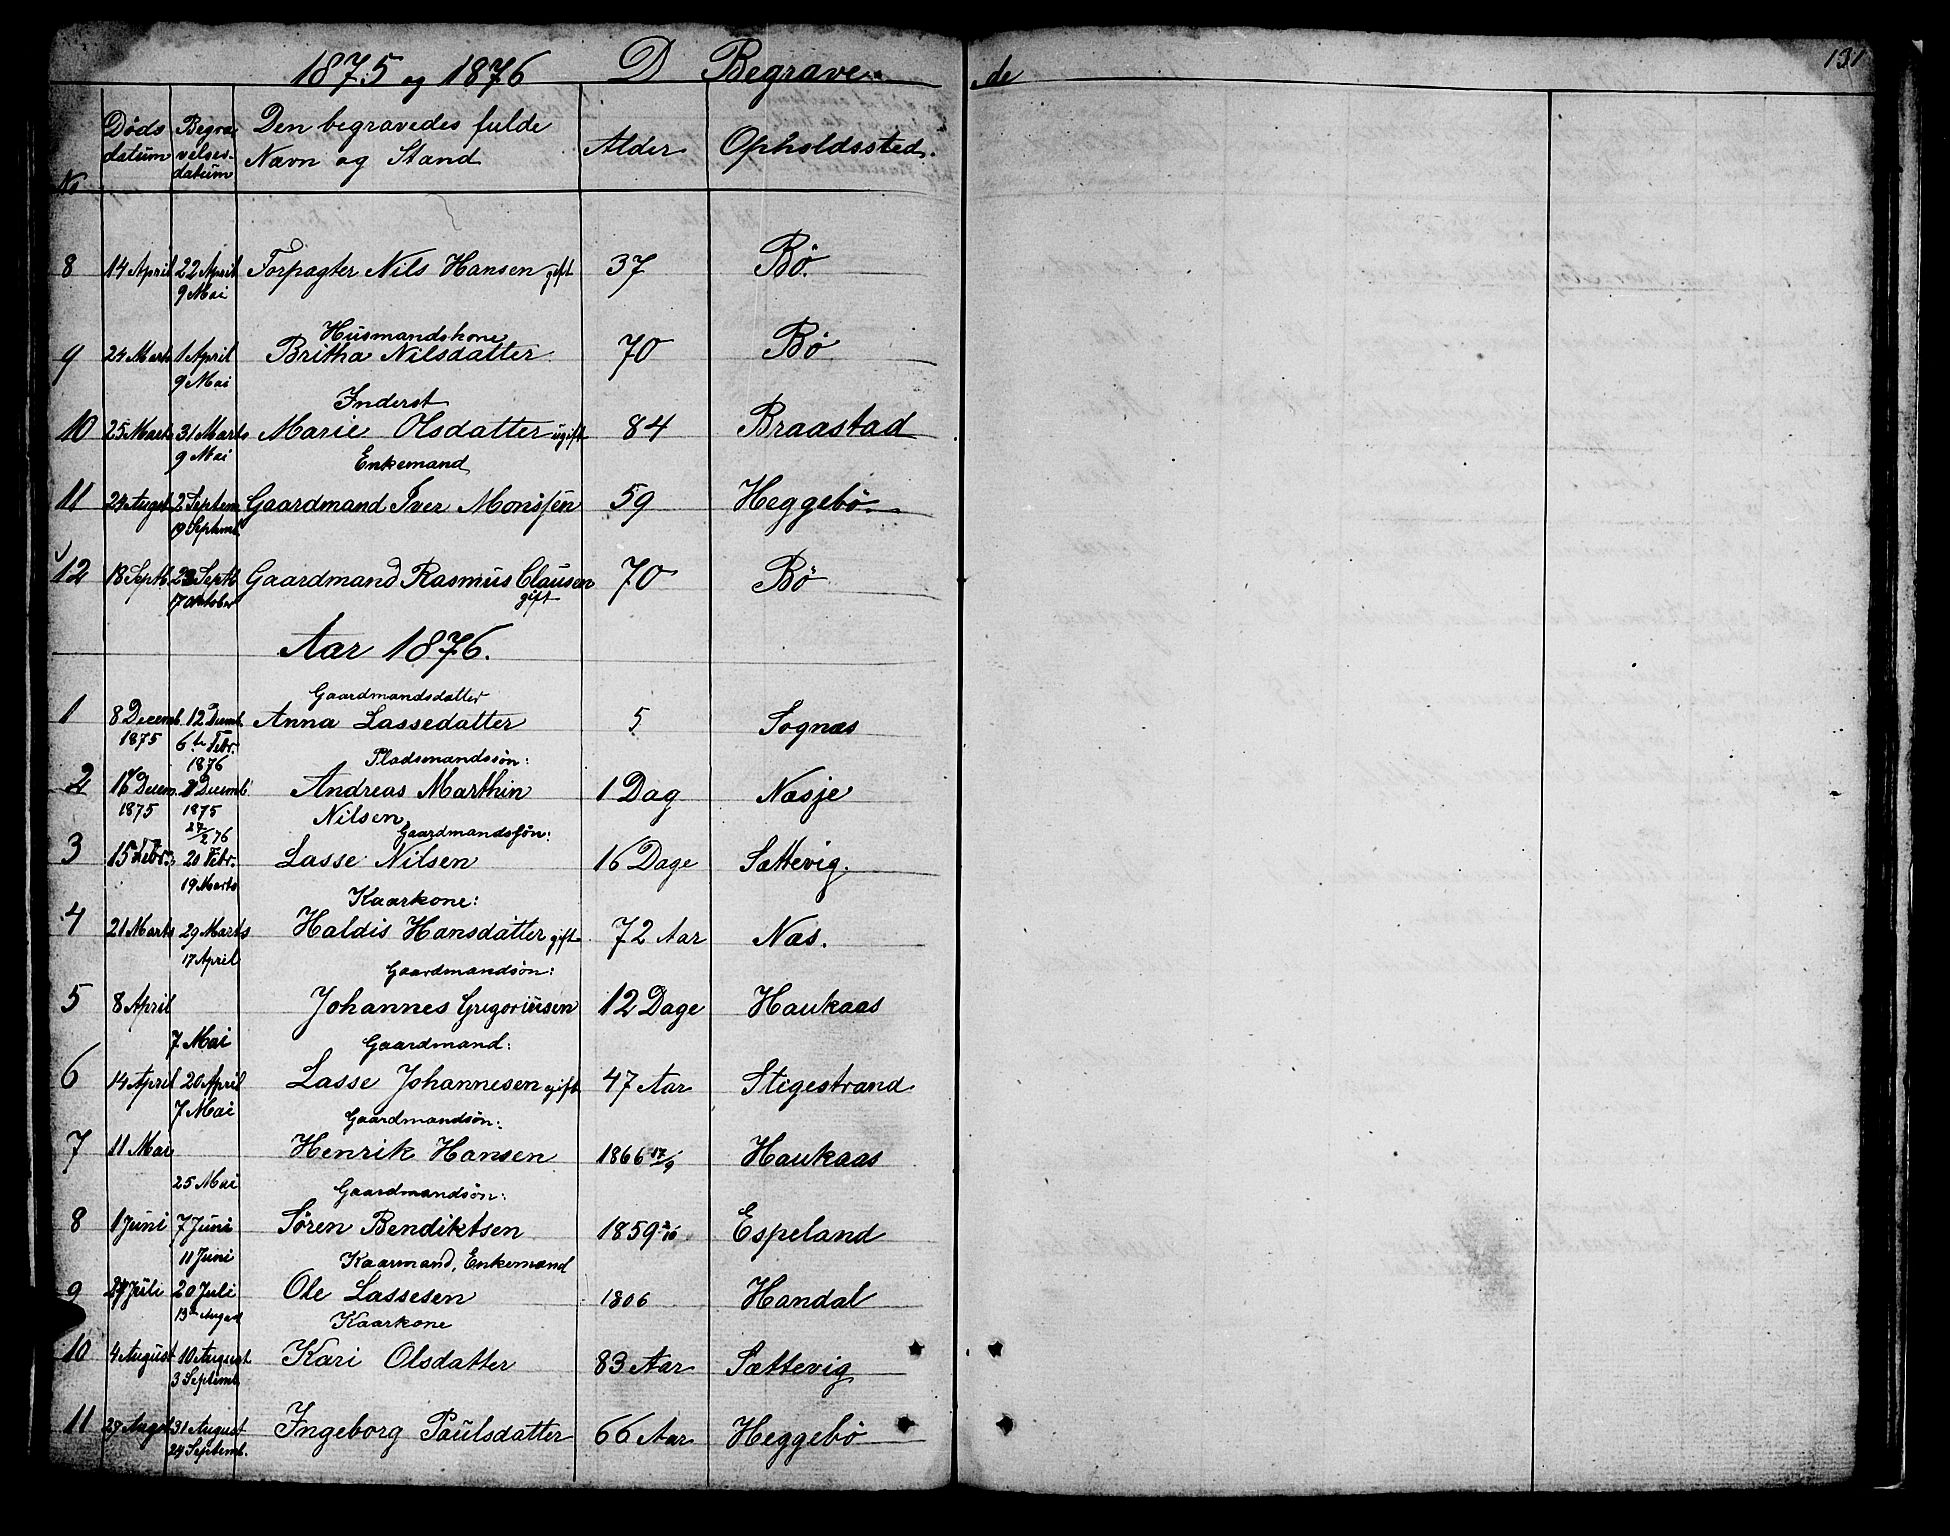 131
1875 og 1876 D Begravede
No Døds datum Begravelses-datum Den begravedes fulde Navn og Stand Alder Opholdssted.
8 14 April 22 April 9 Mai Forpagter Nils Hansen gift 37 Bø.
Husmandskone
9 24 Marts 1 April 9 Mai Britha Nilsdatter 70 Bø
Inderst
10 25 Marts 31 Marts 9 Mai Marie Olsdatter ugift 84 Braastad
Enkemand
11 24 August 2 Septem 19 Septemb Gaardmand Iver Monssen 59 Heggebø.
12 18 Septb 23 Septb 17 October Gaardmand Rasmus Clausen gift 70 Bø
Aar 1876.
Gaardmandsdatter
1 8 Decemb. 1875 12 Decemb. 6te Febr. 1876 Anna Lassedatter 5 Sognæs
Pladsmandssøn:
2 16 Decem. 1875 Decemb 1875 27/2 76 Andreas Marthin Nilsen 1 Dag Næsje
Gaardmandssøn:
3 15 Febr. 20 Febr. 19 Marts Lasse Nilsen 16 Dage Sættevig.
Kaarkone:
4 21 Marts 29 Marts 17 April Haldis Hansdatter gift 72 Aar Næs.
Gaardmandsøn:
5 8 April 7 Mai Johannes Gregoriusen 12 Dage Haukaas
Gaardmand:
6 14 April 20 April 7 Mai Lasse Johannesen gift 47 Aar Stigestrand
Gaardmandsøn:
7 11 Mai 25 Mai Henrik Hansen 1866 17/9 Haukaas
Gaardmandsøn:
8 1 Juni 7 Juni 11 Juni Søren Bendiktsen 1859 Espeland
Kaarmand, Enkemand
9 Juli 20 Juli 13de August Ole Lassesen 1806 Handal
Kaarkone
10 4 August 10 August 3 Septemb Kari Olsdatter 83 Aar Sættevig
11 29 August 31 August 24 Septemb. Ingeborg Paulsdatter 66 Aar Heggebø